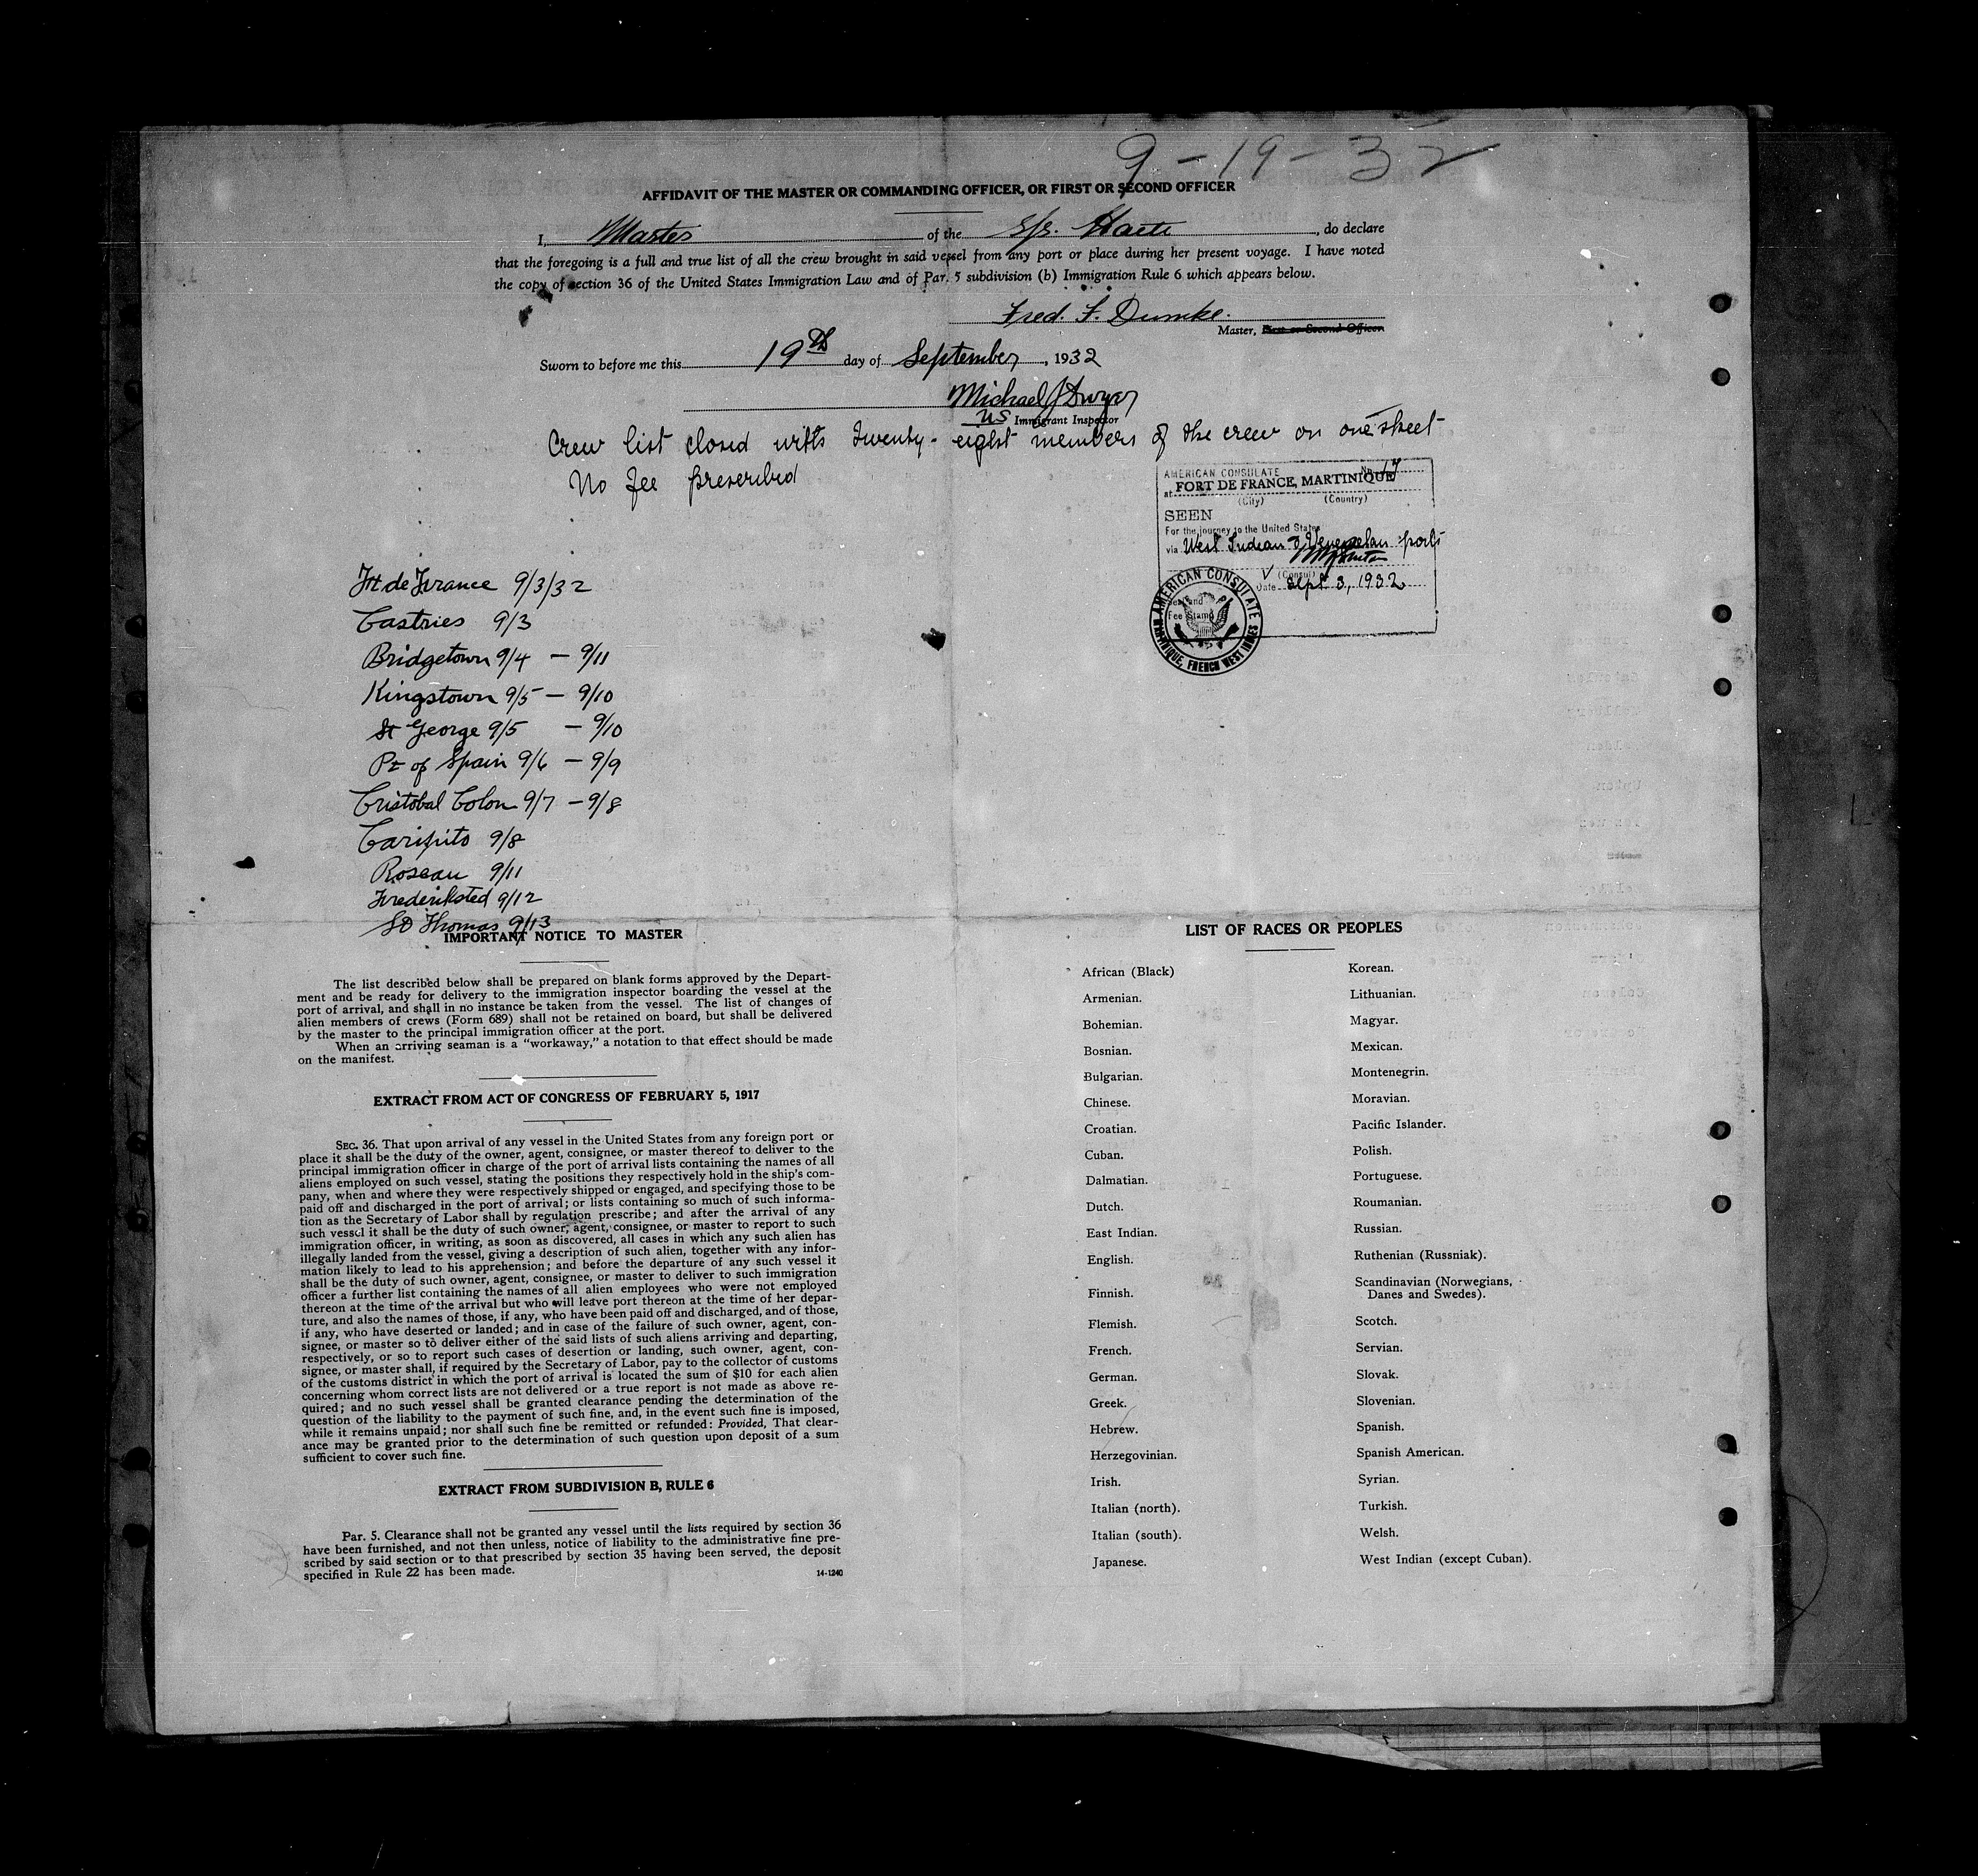 9-19-32
AFFIDAVIT OF THE MASTER OR COMMANDING OFFICER, OR FIRST OR SECOND OFFICER
I, Master of the S/S. Haiti, do declare
that the foregoing is a full and true list of all the crew brought in said vessel from any port or place during her present voyage. I have noted
the copy of section 36 of the United States Immigration Law and of Par. 5 subdivision (b) Immigration Rule 6 which appears below.
Fred. F. Dumke.
Master, First or Second Officer
Sworn to before me this 19th day of September, 1932
Michael J Dwyer
US Immigrant Inspector
Crew list closed with twenty-eight members of the crew on one sheet
No fee prescribed
AMERICAN CONSULATE No. 17
at FORT DE FRANCE, MARTINIQUE
(City) (Country)
SEEN
For the journey to the United States
via West Indian & Venezuelan ports
(Consul)
Date Sept 3, 1932
Seal and
Fee Stamp
AMERICAN CONSULATE
MARTINIQUE, FRENCH WEST INDIES
Ft de France 9/3/32
Castries 9/3
Bridgetown 9/4 - 9/11
Kingstown 9/5 - 9/10
St George 9/5 - 9/10
Pt of Spain 9/6 - 9/9
Cristobal Colon 9/7 - 9/8
Caripito 9/8
Roseau 9/11
Frederiksted 9/12
St Thomas 9/13
IMPORTANT NOTICE TO MASTER
The list described below shall be prepared on blank forms approved by the Depart-
ment and be ready for delivery to the immigration inspector boarding the vessel at the
port of arrival, and shall in no instance be taken from the vessel. The list of changes of
alien members of crews (Form 689) shall not be retained on board, but shall be delivered
by the master to the principal immigration officer at the port.
When an arriving seaman is a "workaway," a notation to that effect should be made
on the manifest.
EXTRACT FROM ACT OF CONGRESS OF FEBRUARY 5, 1917
SEC. 36. That upon arrival of any vessel in the United States from any foreign port or
place it shall be the duty of the owner, agent, consignee, or master thereof to deliver to the
principal immigration officer in charge of the port of arrival lists containing the names of all
aliens employed on such vessel, stating the positions they respectively hold in the ship's com-
pany, when and where they were respectively shipped or engaged, and specifying those to be
paid off and discharged in the port of arrival; or lists containing so much of such informa-
tion as the Secretary of Labor shall by regulation prescribe; and after the arrival of any
such vessel it shall be the duty of such owner, agent, consignee, or master to report to such
immigration officer, in writing, as soon as discovered, all cases in which any such alien has
illegally landed from the vessel, giving a description of such alien, together with any infor-
mation likely to lead to his apprehension; and before the departure of any such vessel it
shall be the duty of such owner, agent, consignee, or master to deliver to such immigration
officer a further list containing the names of all alien employees who were not employed
thereon at the time of the arrival but who will leave port thereon at the time of her depar-
ture, and also the names of those, if any, who have been paid off and discharged, and of those,
if any, who have deserted or landed; and in case of the failure of such owner, agent, con-
signee, or master so to deliver either of the said lists of such aliens arriving and departing,
respectively, or so to report such cases of desertion or landing, such owner, agent, con-
signee, or master shall, if required by the Secretary of Labor, pay to the collector of customs
of the customs district in which the port of arrival is located the sum of $10 for each alien
concerning whom correct lists are not delivered or a true report is not made as above re-
quired; and no such vessel shall be granted clearance pending the determination of the
question of the liability to the payment of such fine, and, in the event such fine is imposed,
while it remains unpaid; nor shall such fine be remitted or refunded: Provided, That clear-
ance may be granted prior to the determination of such question upon deposit of a sum
sufficient to cover such fine.
EXTRACT FROM SUBDIVISION B, RULE 6
Par. 5. Clearance shall not be granted any vessel until the lists required by section 36
have been furnished, and not then unless, notice of liability to the administrative fine pre-
scribed by said section or to that prescribed by section 35 having been served, the deposit
specified in Rule 22 has been made.
14-1240
LIST OF RACES OR PEOPLES
African (Black)
Armenian.
Bohemian.
Bosnian.
Bulgarian.
Chinese.
Croatian.
Cuban.
Dalmatian.
Dutch.
East Indian.
English.
Finnish.
Flemish.
French.
German.
Greek.
Hebrew.
Herzegovinian.
Irish.
Italian (north).
Italian (south).
Japanese.
Korean.
Lithuanian.
Magyar.
Mexican.
Montenegrin.
Moravian.
Pacific Islander.
Polish.
Portuguese.
Roumanian.
Russian.
Ruthenian (Russniak).
Scandinavian (Norwegians,
Danes and Swedes).
Scotch.
Servian.
Slovak.
Slovenian.
Spanish.
Spanish American.
Syrian.
Turkish.
Welsh.
West Indian (except Cuban).